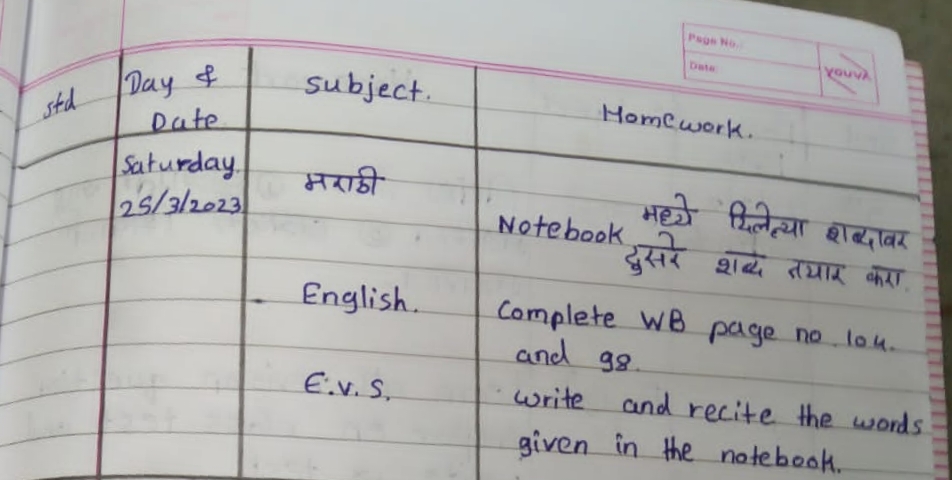 Page No.:
Date:
YOUVA
std
Day &
Date
Subject.
Homework.
Saturday.
25/3/2023
मराठी
Notebook मध्ये दिलेल्या शब्दावर
दुसरे शब्द तयार करा.
English.
Complete WB page no. 104.
and 98.
E.V.S.
write and recite the words
given in the notebook.